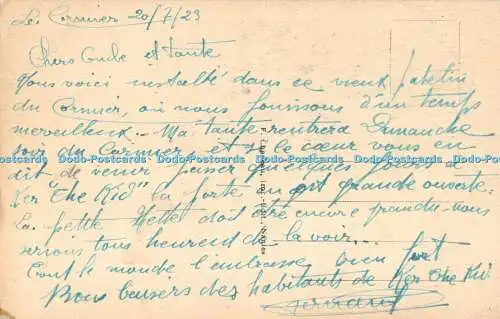 Le Cormier 20/7/23
Chers Oncle et tante
Nous voici installé dans ce vieux patelin
du Cormier, où nous jouissons d'un temps
merveilleux. - Ma tante rentrera Dimanche
soir du Cormier, et si le cœur vous en
dit de venir passer quelques jours à
Ker "The Kid" la porte en est grande ouverte.
La petite doit être encore grandie, nous
serions tous heureux de la voir...
Tout le monde l'embrasse bien fort
Bons baisers des habitants de Ker The Kid
Fernand
Dodo-Postcards Dodo-Postcards Dodo-Postcards Dodo-Postcards